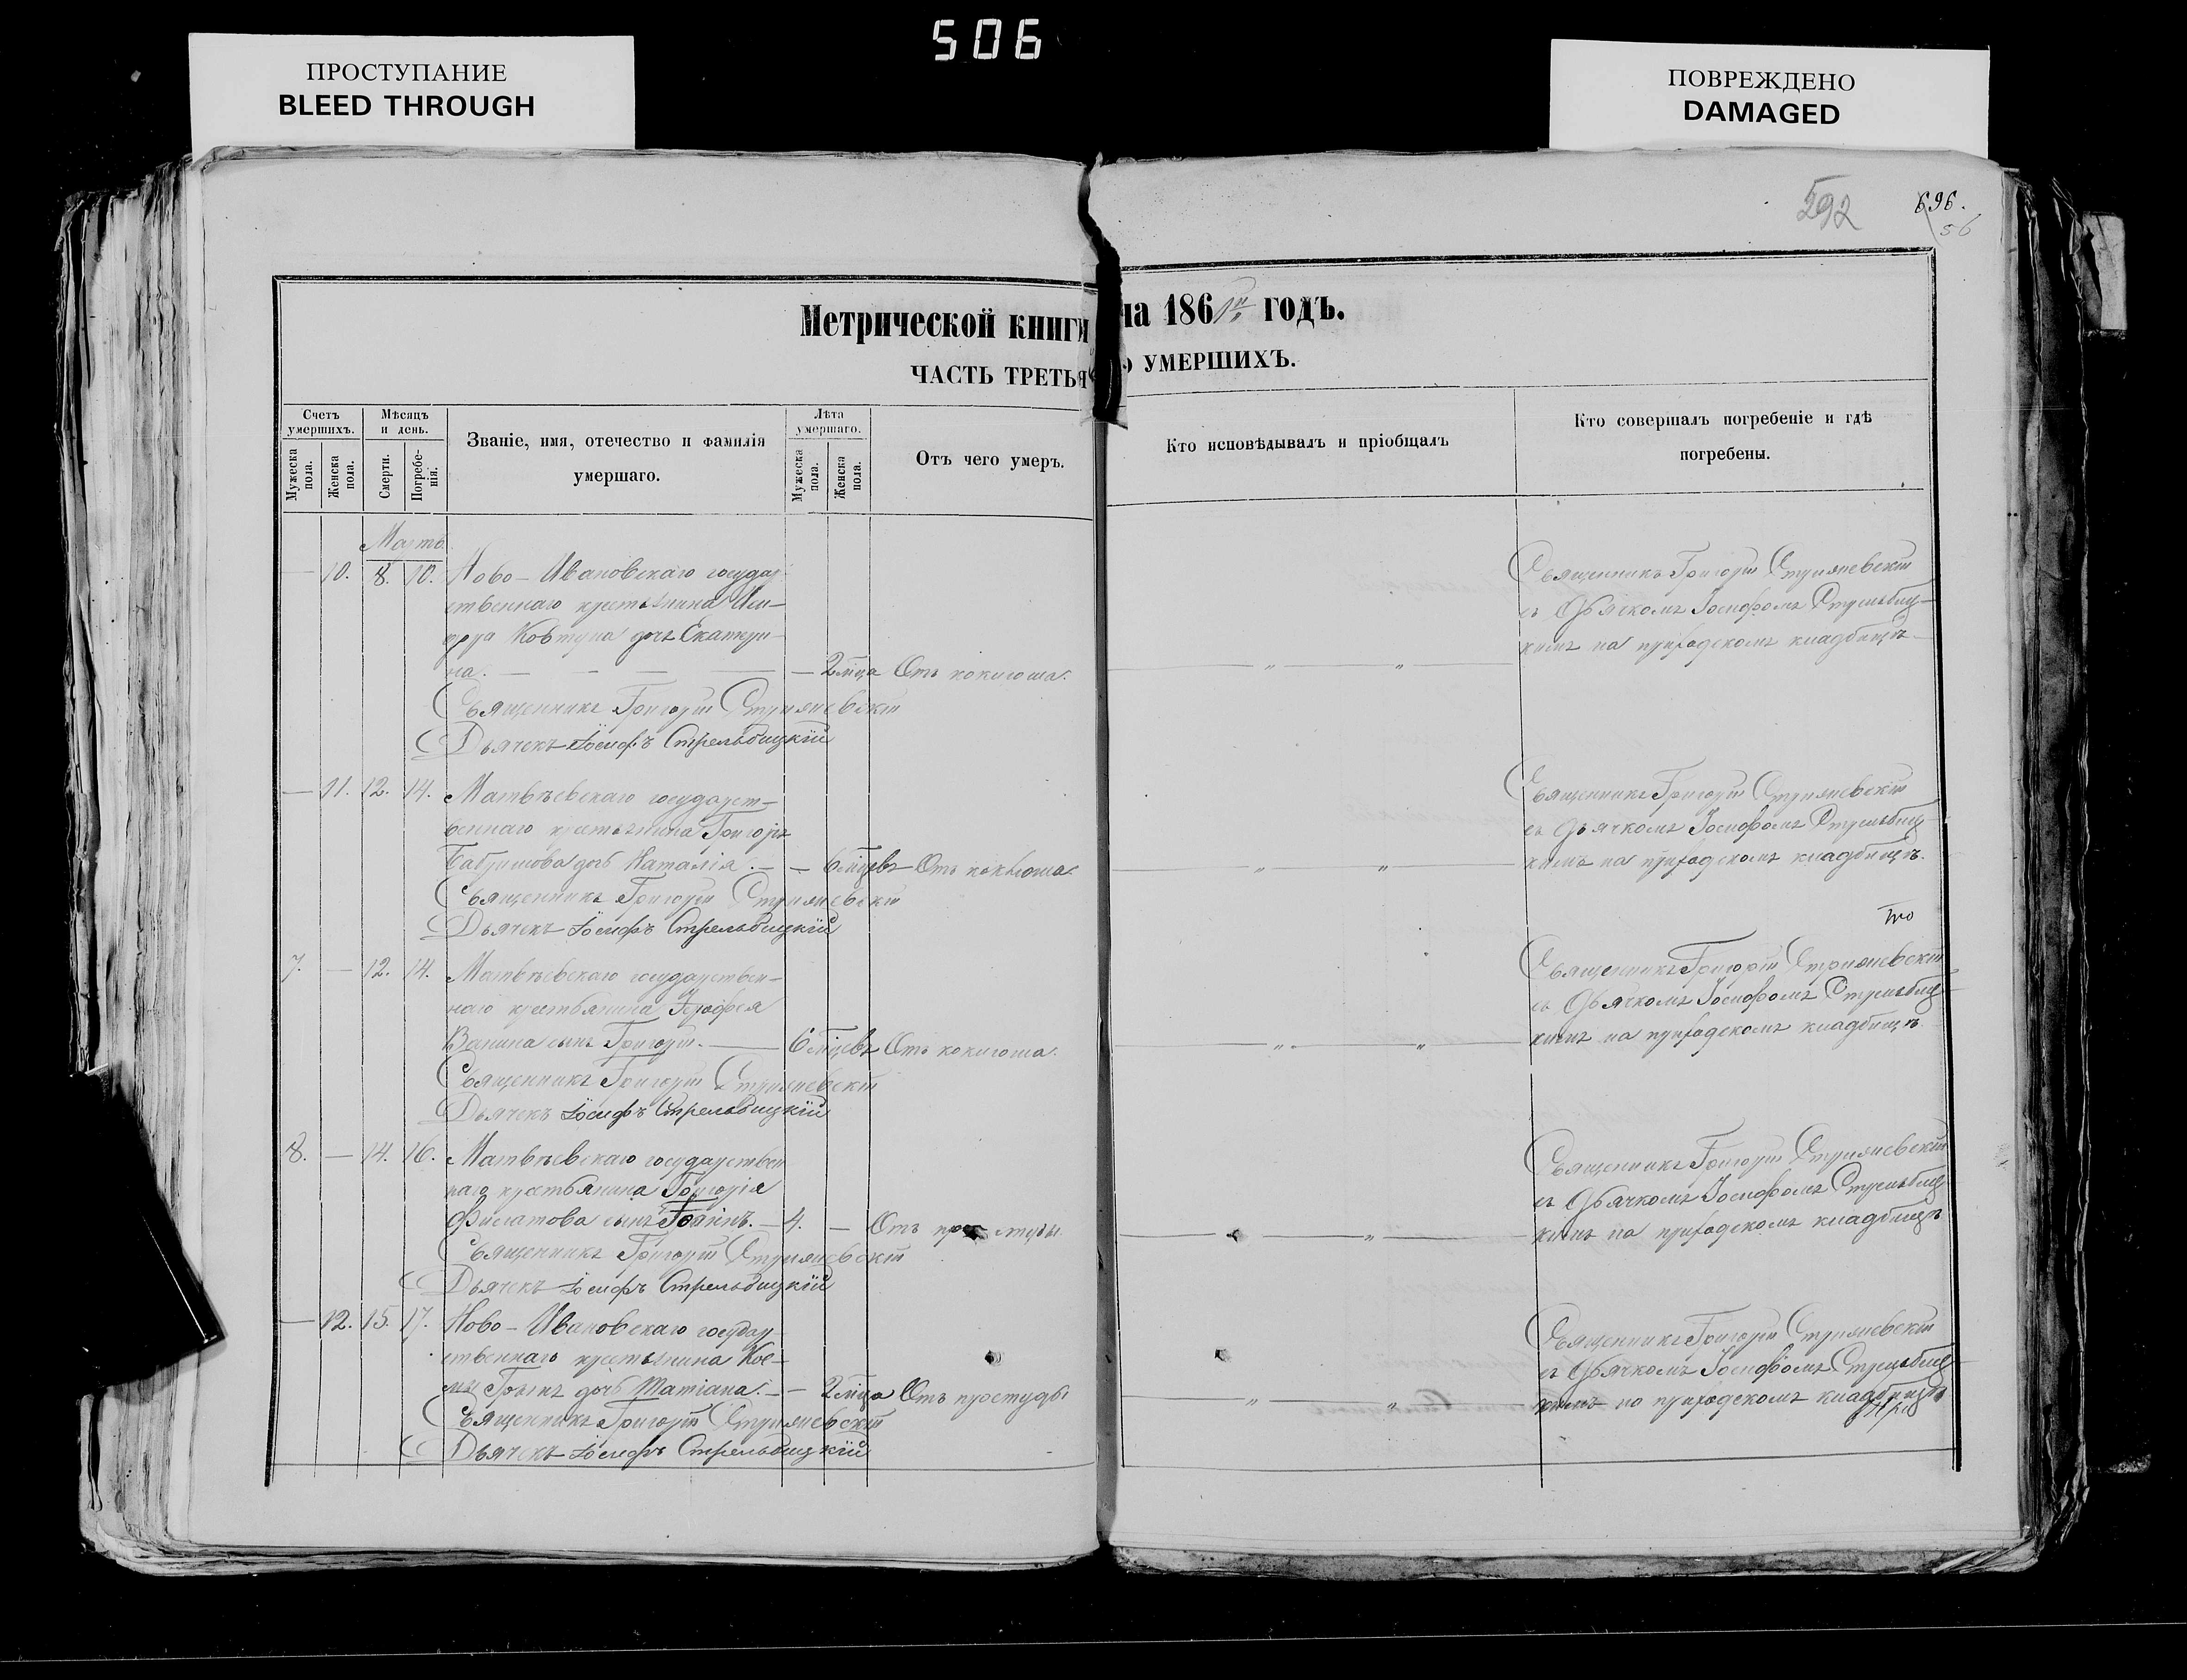 506
ПРОСТУПАНИЕ
BLEED THROUGH
ПОВРЕЖДЕНО
DAMAGED
592
696.
56
Метрической книги на 186 годъ.
ЧАСТЬ ТРЕТЬЯ УМЕРШИХЪ.
Счетъ умершихъ.
Мужеска пола.
Женска пола.
Мѣсяцъ и день.
Смерти.
Погребенія.
Званіе, имя, отечество и фамилія умершаго.
Лѣта умершаго.
Мужеска пола.
Женска пола.
Отъ чего умеръ.
Кто исповѣдывалъ и пріобщалъ
Кто совершалъ погребеніе и гдѣ погребены.
Мартъ
— 10. 8. 10. Ново-Ивановскаго государ-
ственнаго крестьянина
Ковтуна дочь Екатери-
на. — — — — — 2 мца Отъ коклюша.
Священникъ Григорій Стрияневскій
Дьячекъ Іосифъ Стрельбицкій
Священникъ Григорій Стрияневскій
съ Дьячкомъ Іосифомъ Стрельбиц-
кимъ на приходскомъ кладбищѣ
— 11. 12. 14. Матвѣевскаго государст-
веннаго крестьянина Григорія
дочь Наталія. — — 6 мцевъ Отъ коклюша.
Священникъ Григорій Стрияневскій
Дьячекъ Іосифъ Стрельбицкій
Священникъ Григорій Стрияневскій
съ Дьячкомъ Іосифомъ Стрельбиц-
кимъ на приходскомъ кладбищѣ.
7. — 12. 14. Матвѣевскаго государствен-
наго крестьянина Ерофея
Ванина сынъ Григорій. — 6 мцевъ Отъ коклюша.
Священникъ Григорій Стрияневскій
Дьячекъ Іосифъ Стрельбицкій
Священникъ Григорій Стрияневскій
съ Дьячкомъ Іосифомъ Стрельбиц-
кимъ на приходскомъ кладбищѣ
8. — 14. 16. Матвѣевскаго государствен
наго крестьянина Григорія
Филатова сынъ Іоаннъ. — 4. — Отъ простуды
Священникъ Григорій Стрияневскій
Дьячекъ Іосифъ Стрельбицкій
Священникъ Григорій Стрияневскій
съ Дьячкомъ Іосифомъ Стрельбиц-
кимъ на приходскомъ кладбищѣ
— 12. 15. 17. Ново-Ивановскаго государ-
ственнаго крестьянина Кос-
мы дочь Татіана. — — 2 мца Отъ простуды
Священникъ Григорій Стрияневскій
Дьячекъ Іосифъ Стрельбицкій
Священникъ Григорій Стрияневскій
съ Дьячкомъ Іосифомъ Стрельбиц-
кимъ на приходскомъ кладбищѣ